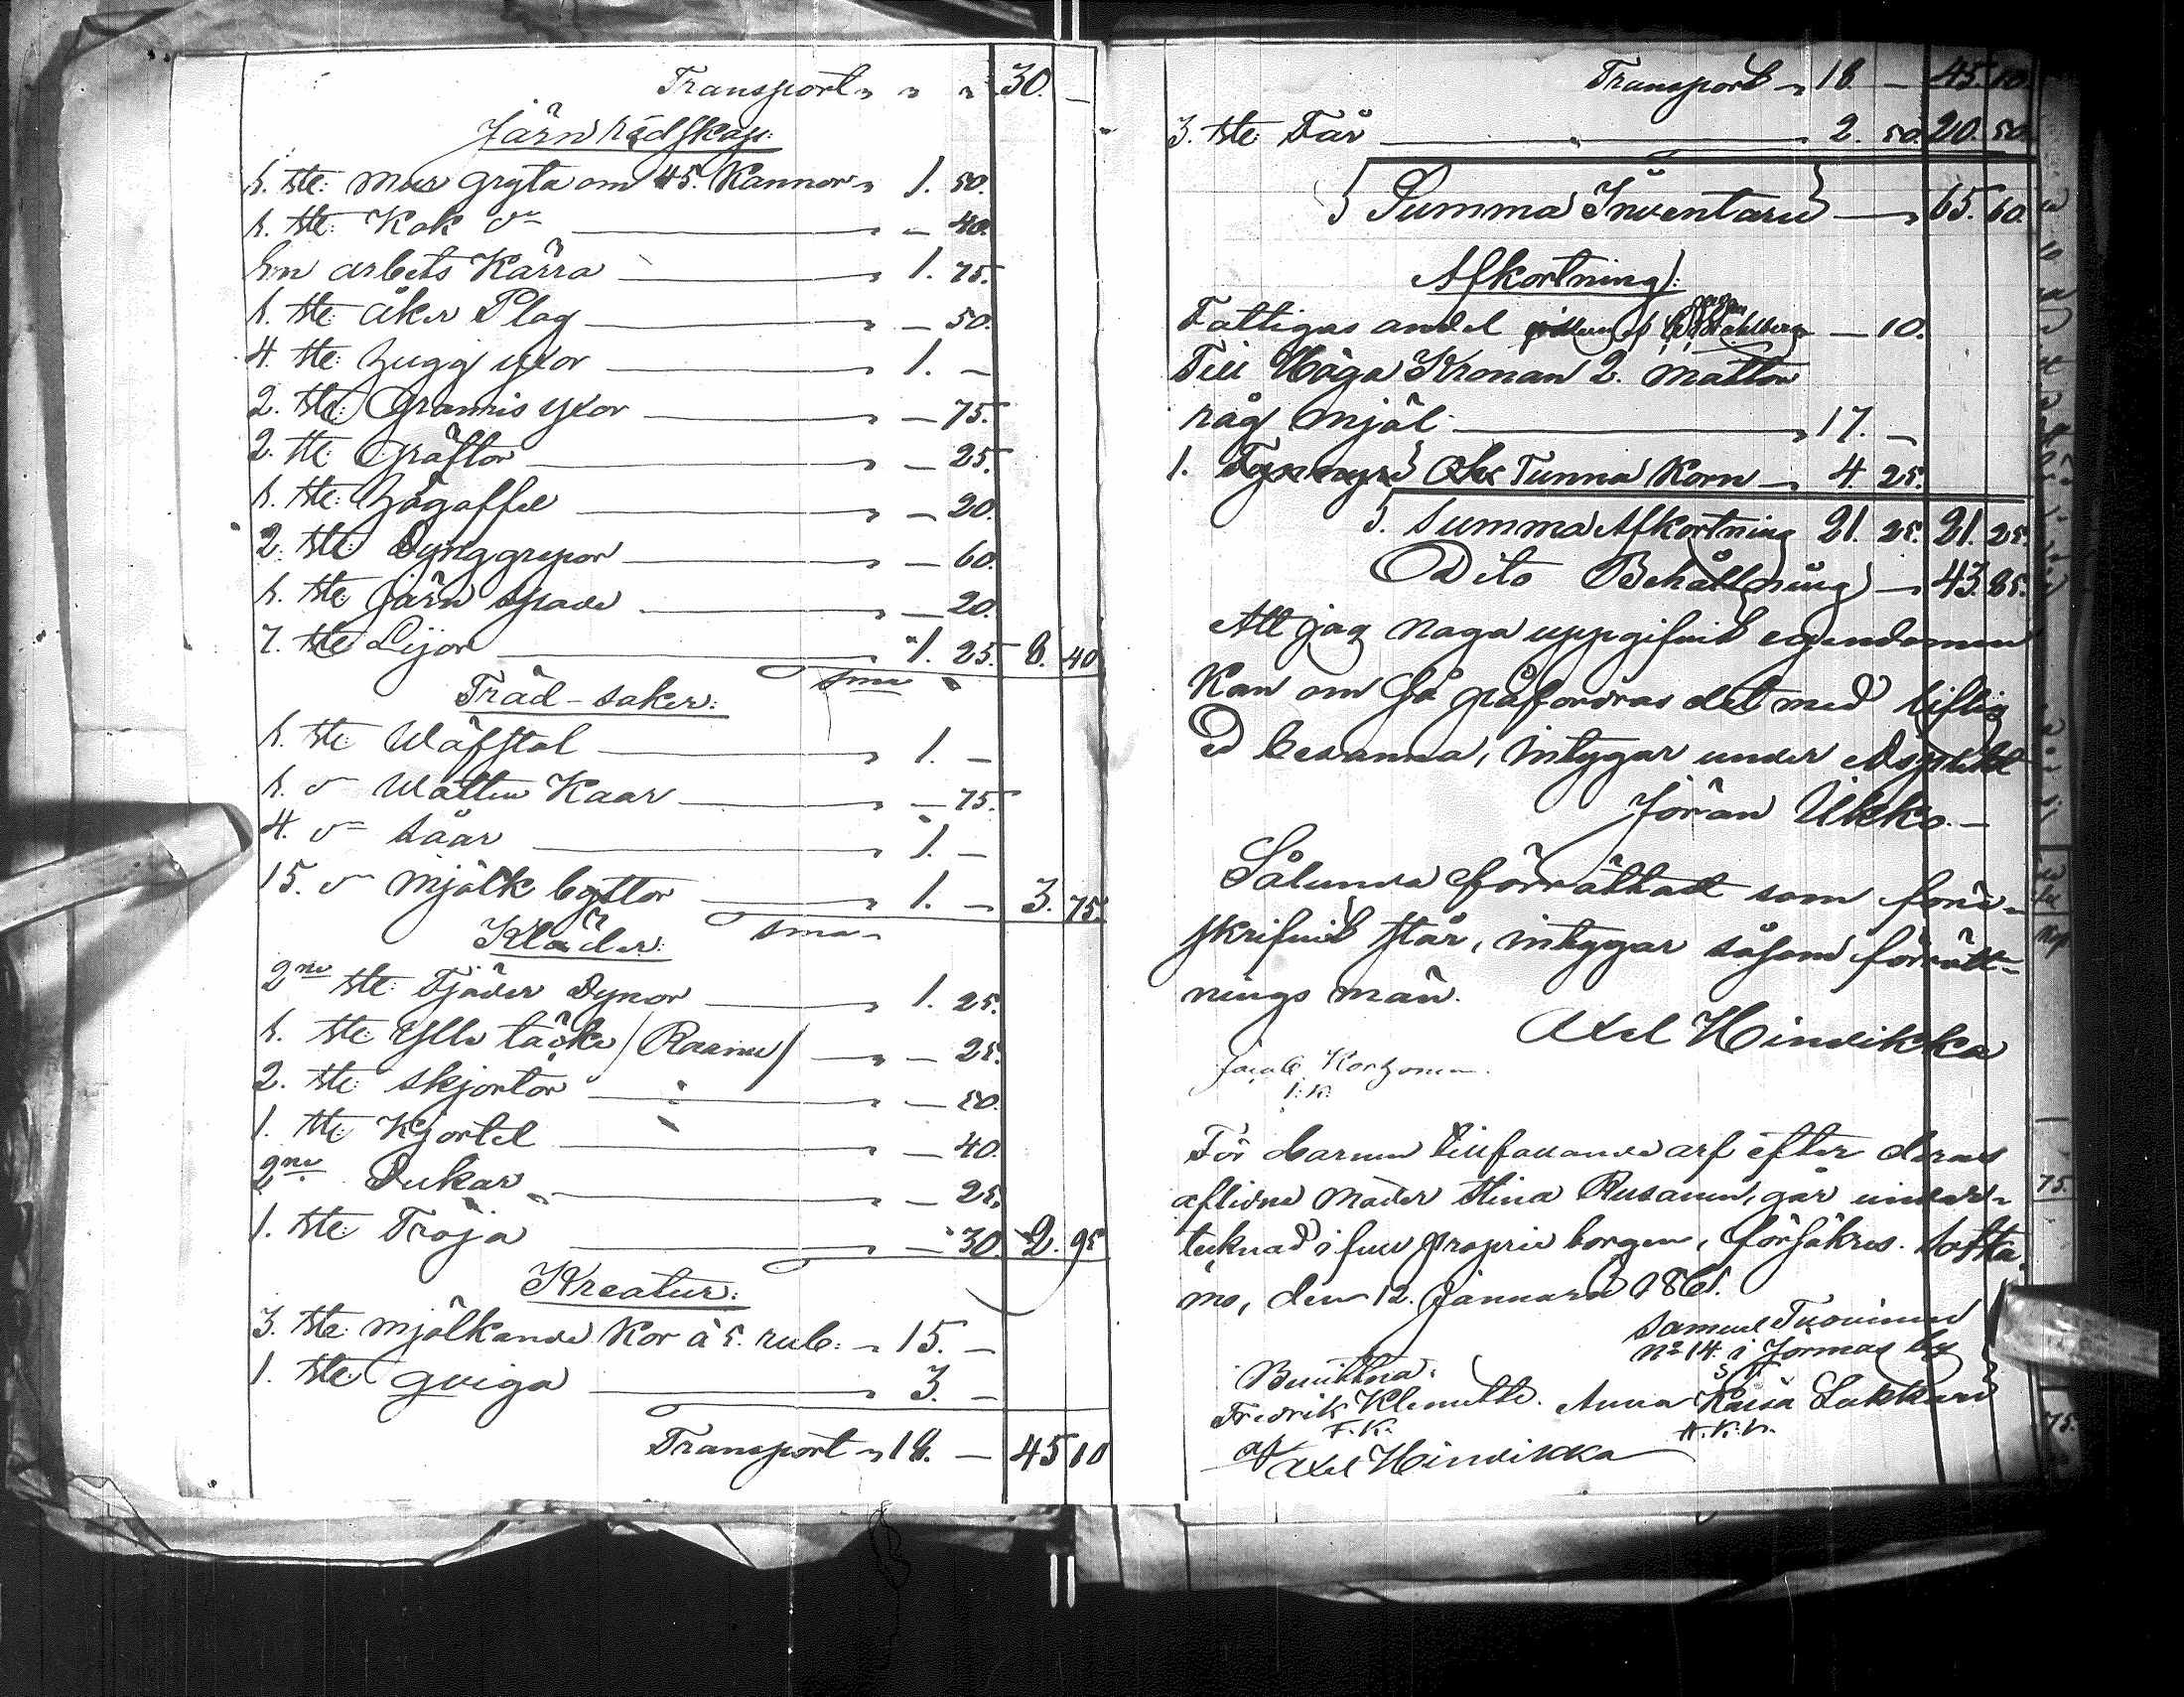 Transport " " " 30. —
Järn rädskap:
1. ste: mur gryta om 45. Kannor " 1. 50.
1. ste: Kok dº " — 40.
En arbets Kärra " 1. 75.
1. ste åker Plog " — 50.
4. ste: hugg yxor " 1. —
2. ste: yxor " — 75.
2. ste: Gräftor " — 25.
1. ste: högaffel " — 20.
2. ste: Dynggrepor " — 60.
1. ste järn spade " — 20.
7. ste Lijor " 1. 25. 8. 40
Träd-saker: sma
1. ste: Wäfstol " 1. —
1. dº Watten Kaar " — 75.
4. dº såar " 1. —
15. dº mjölk byttor " 1. — 3. 75.
Kläder: sma
2ne ste: Fjäder Dynor " 1. 25.
1. ste ylle täcke /Raanu/ " — 25.
2. ste: skjortor " — 50.
1. ste Kjortel " — 40.
2ne Dukar " — 25.
1. ste: Tröja — 30. 2. 95
Kreatur:
3. ste: mjölkande Kor à 5. rub: " 15. —
1. ste: qviga " 3. —
Transport " 18. — 45 10
Transport " 18. — 45. 10.
3. ste: Får " 2. 50. 20. 50.
S Summa Inventarii " 65. 60.
Afkortning:
Fattigas andel — 10.
Till Höga Kronan 2. mattor
råg mjöl " 17. —
1. Tunna Korn " 4. 25.
S. Summa Afkortning 21. 25. 21. 25.
Dito Behållning " 43. 85.
Att jag noga uppgifvit egendomen
Kan om så påfordras det med liflig
Ed besanna, intygar under Edsplikt
Jöran Ukko. —
Sålunda förrättadt som före-
skrifvit står, intygar såsom förrätt-
nings män.
Axel Hindikka
Jacob Korhonen.
I: K:
För barnen tillfallande arf efter deras
aflidna moder Stina Rusanen, går under-
teknad i full proprie borgen, försäkras. Sotka-
mo, den 12. Januarii 1861.
Samuel Tuovinen
Nº 14 i Jormas by
S T
Bevittna:
Fredrik Klemetti. Anna Kaisa Lukkari
F. K. A. K. L.
af Axel Hindikka